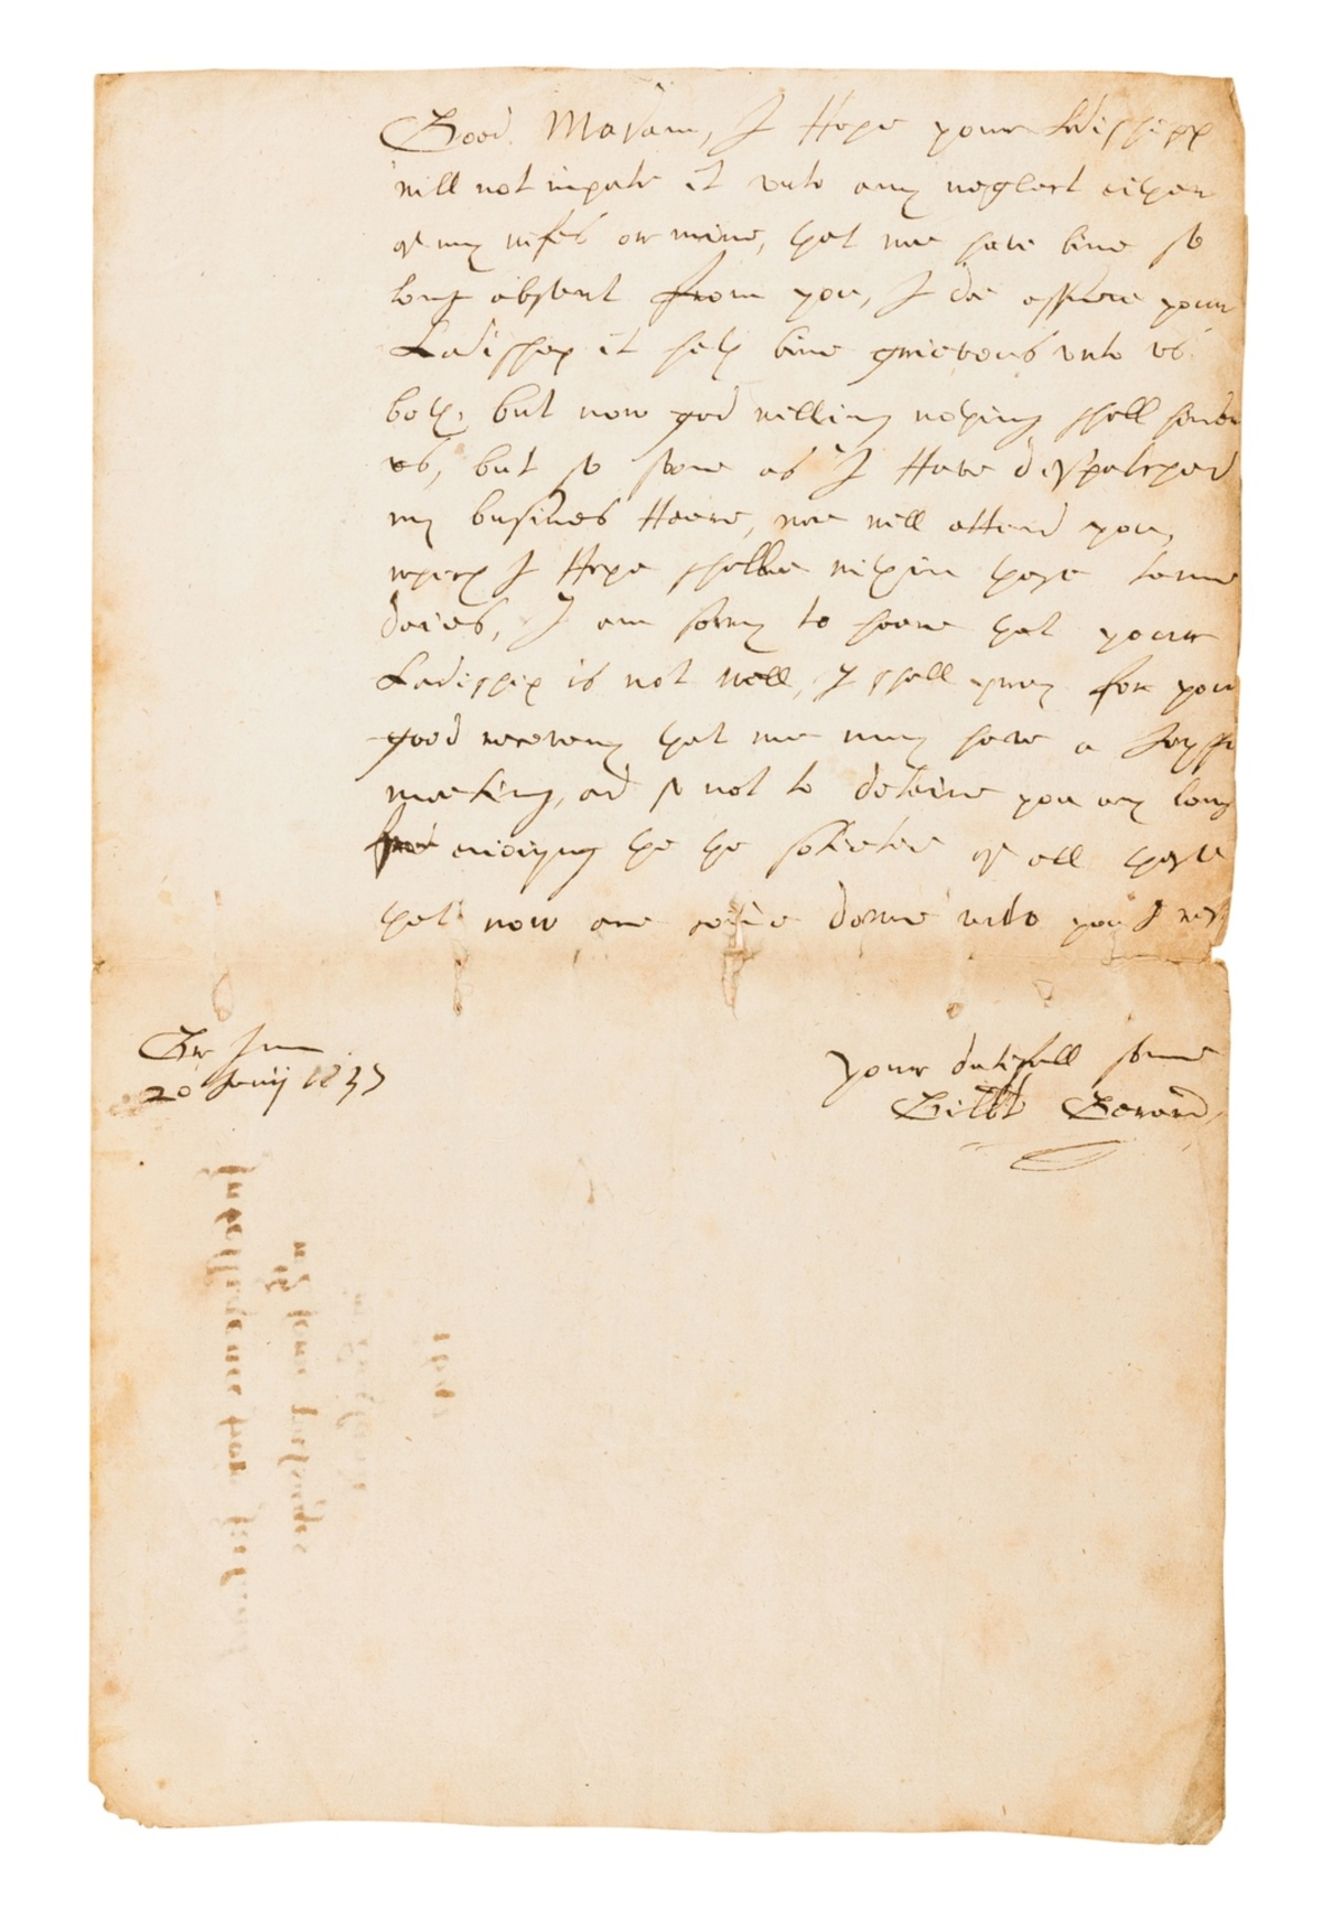 Good Madam, I Hope your Ladishipp
will not impute it unto any neglect either
of my wifes or mine, that wee have bine so
long absent from you, I doe assure your
Ladiship it hath bine grievous unto us
both, but now god willing nothing shall hinder
us, but so soone as I Have dispatched
my busines Heere, wee will attend you,
which I Hope shalbe within these tenne
daies, I am sorry to heare that your
Ladiship is not well, I shall pray for your
good recovery that we may have a
meeting, and so not to detaine you any long
enioiyng the the of all those
that now are come downe unto you I rest
your dutifull sonne
Gilbt Gerard
20 Junij 1637